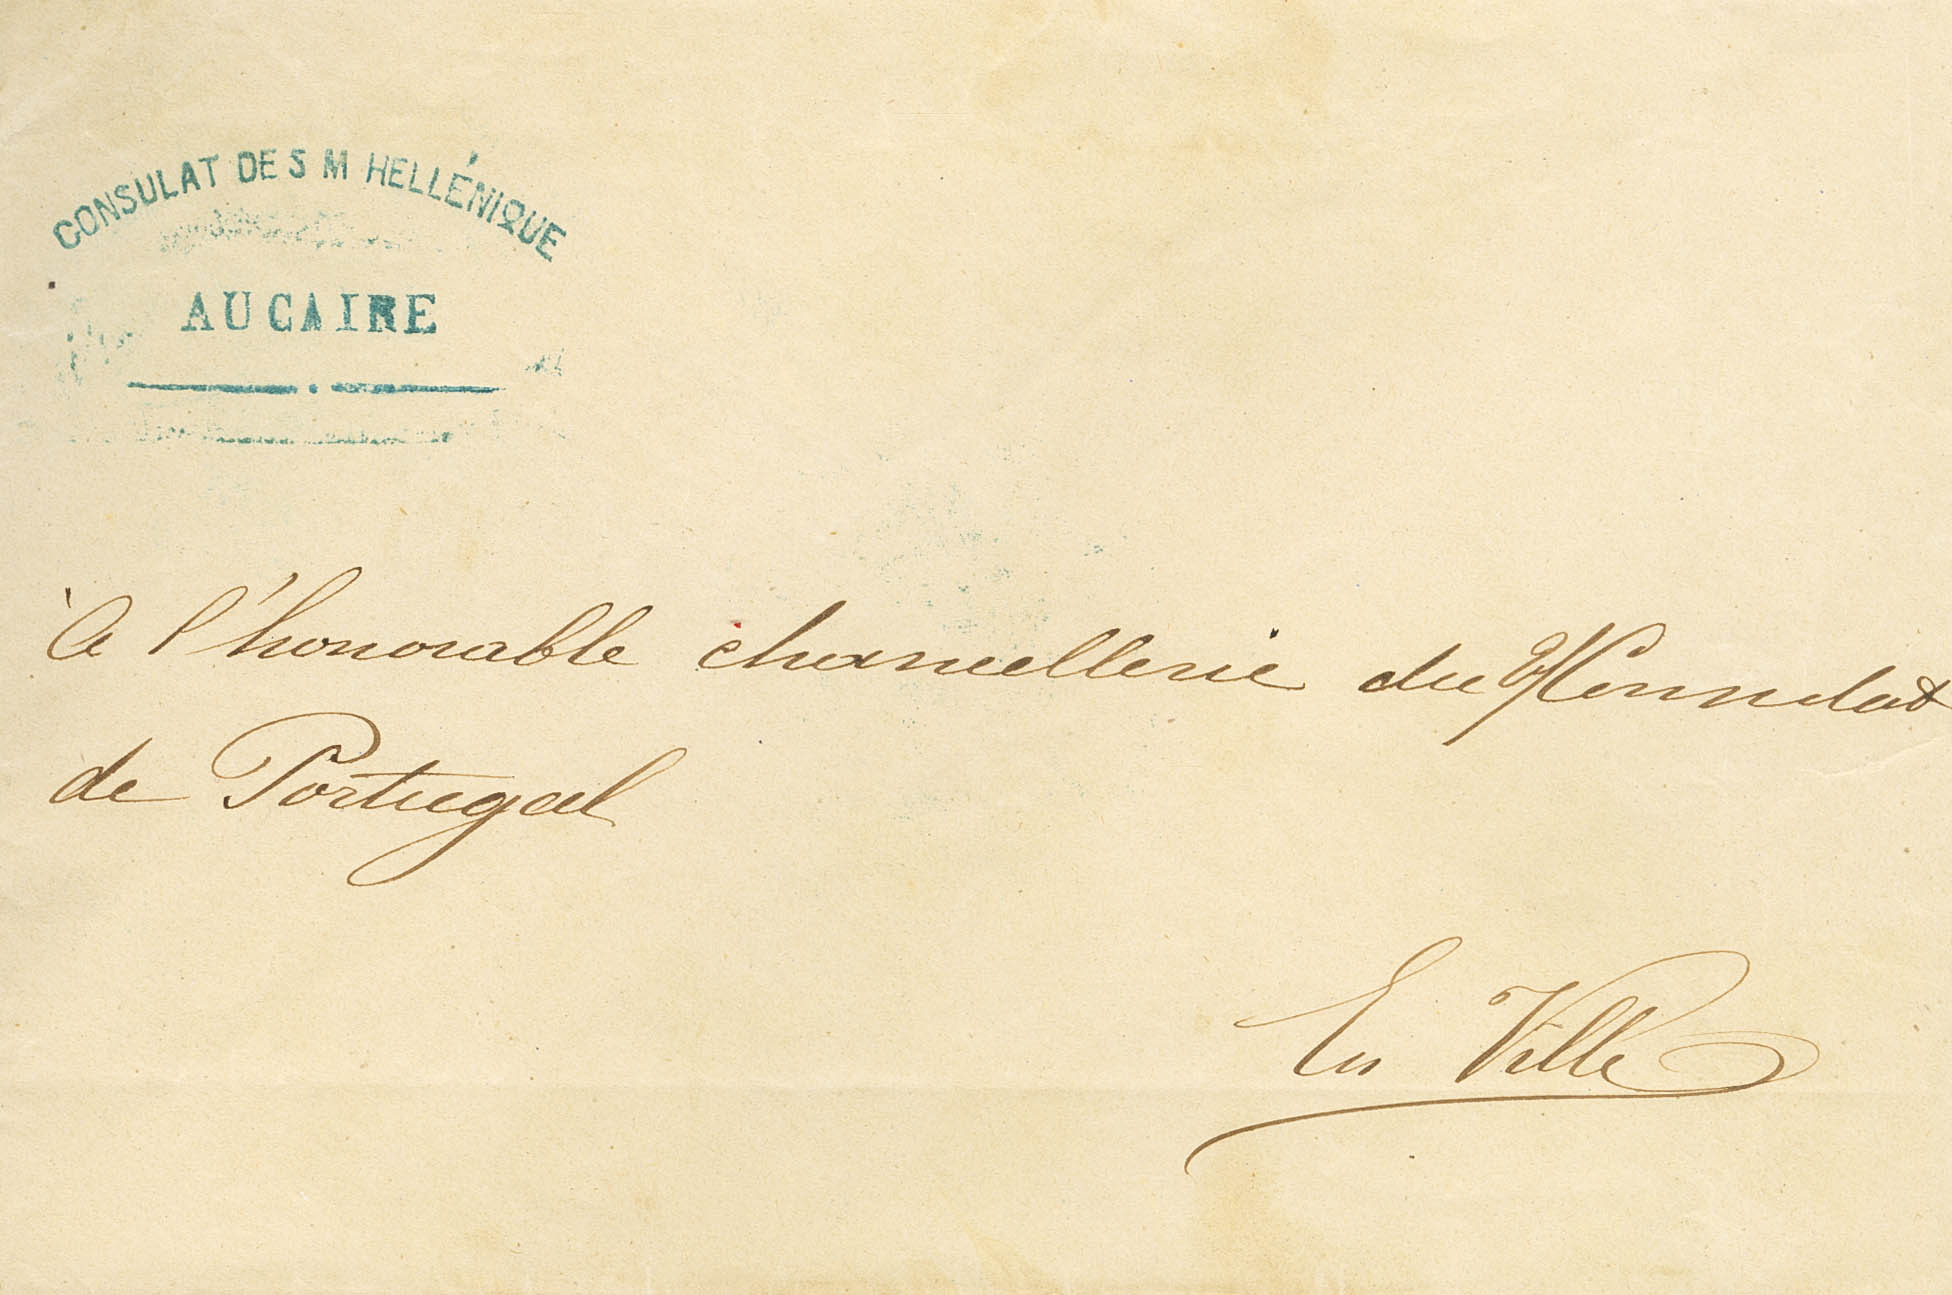 CONSULAT DE S M HELLÉNIQUE
AU CAIRE
à l'honorable chancellerie du Consulat
de Portugal
En Ville